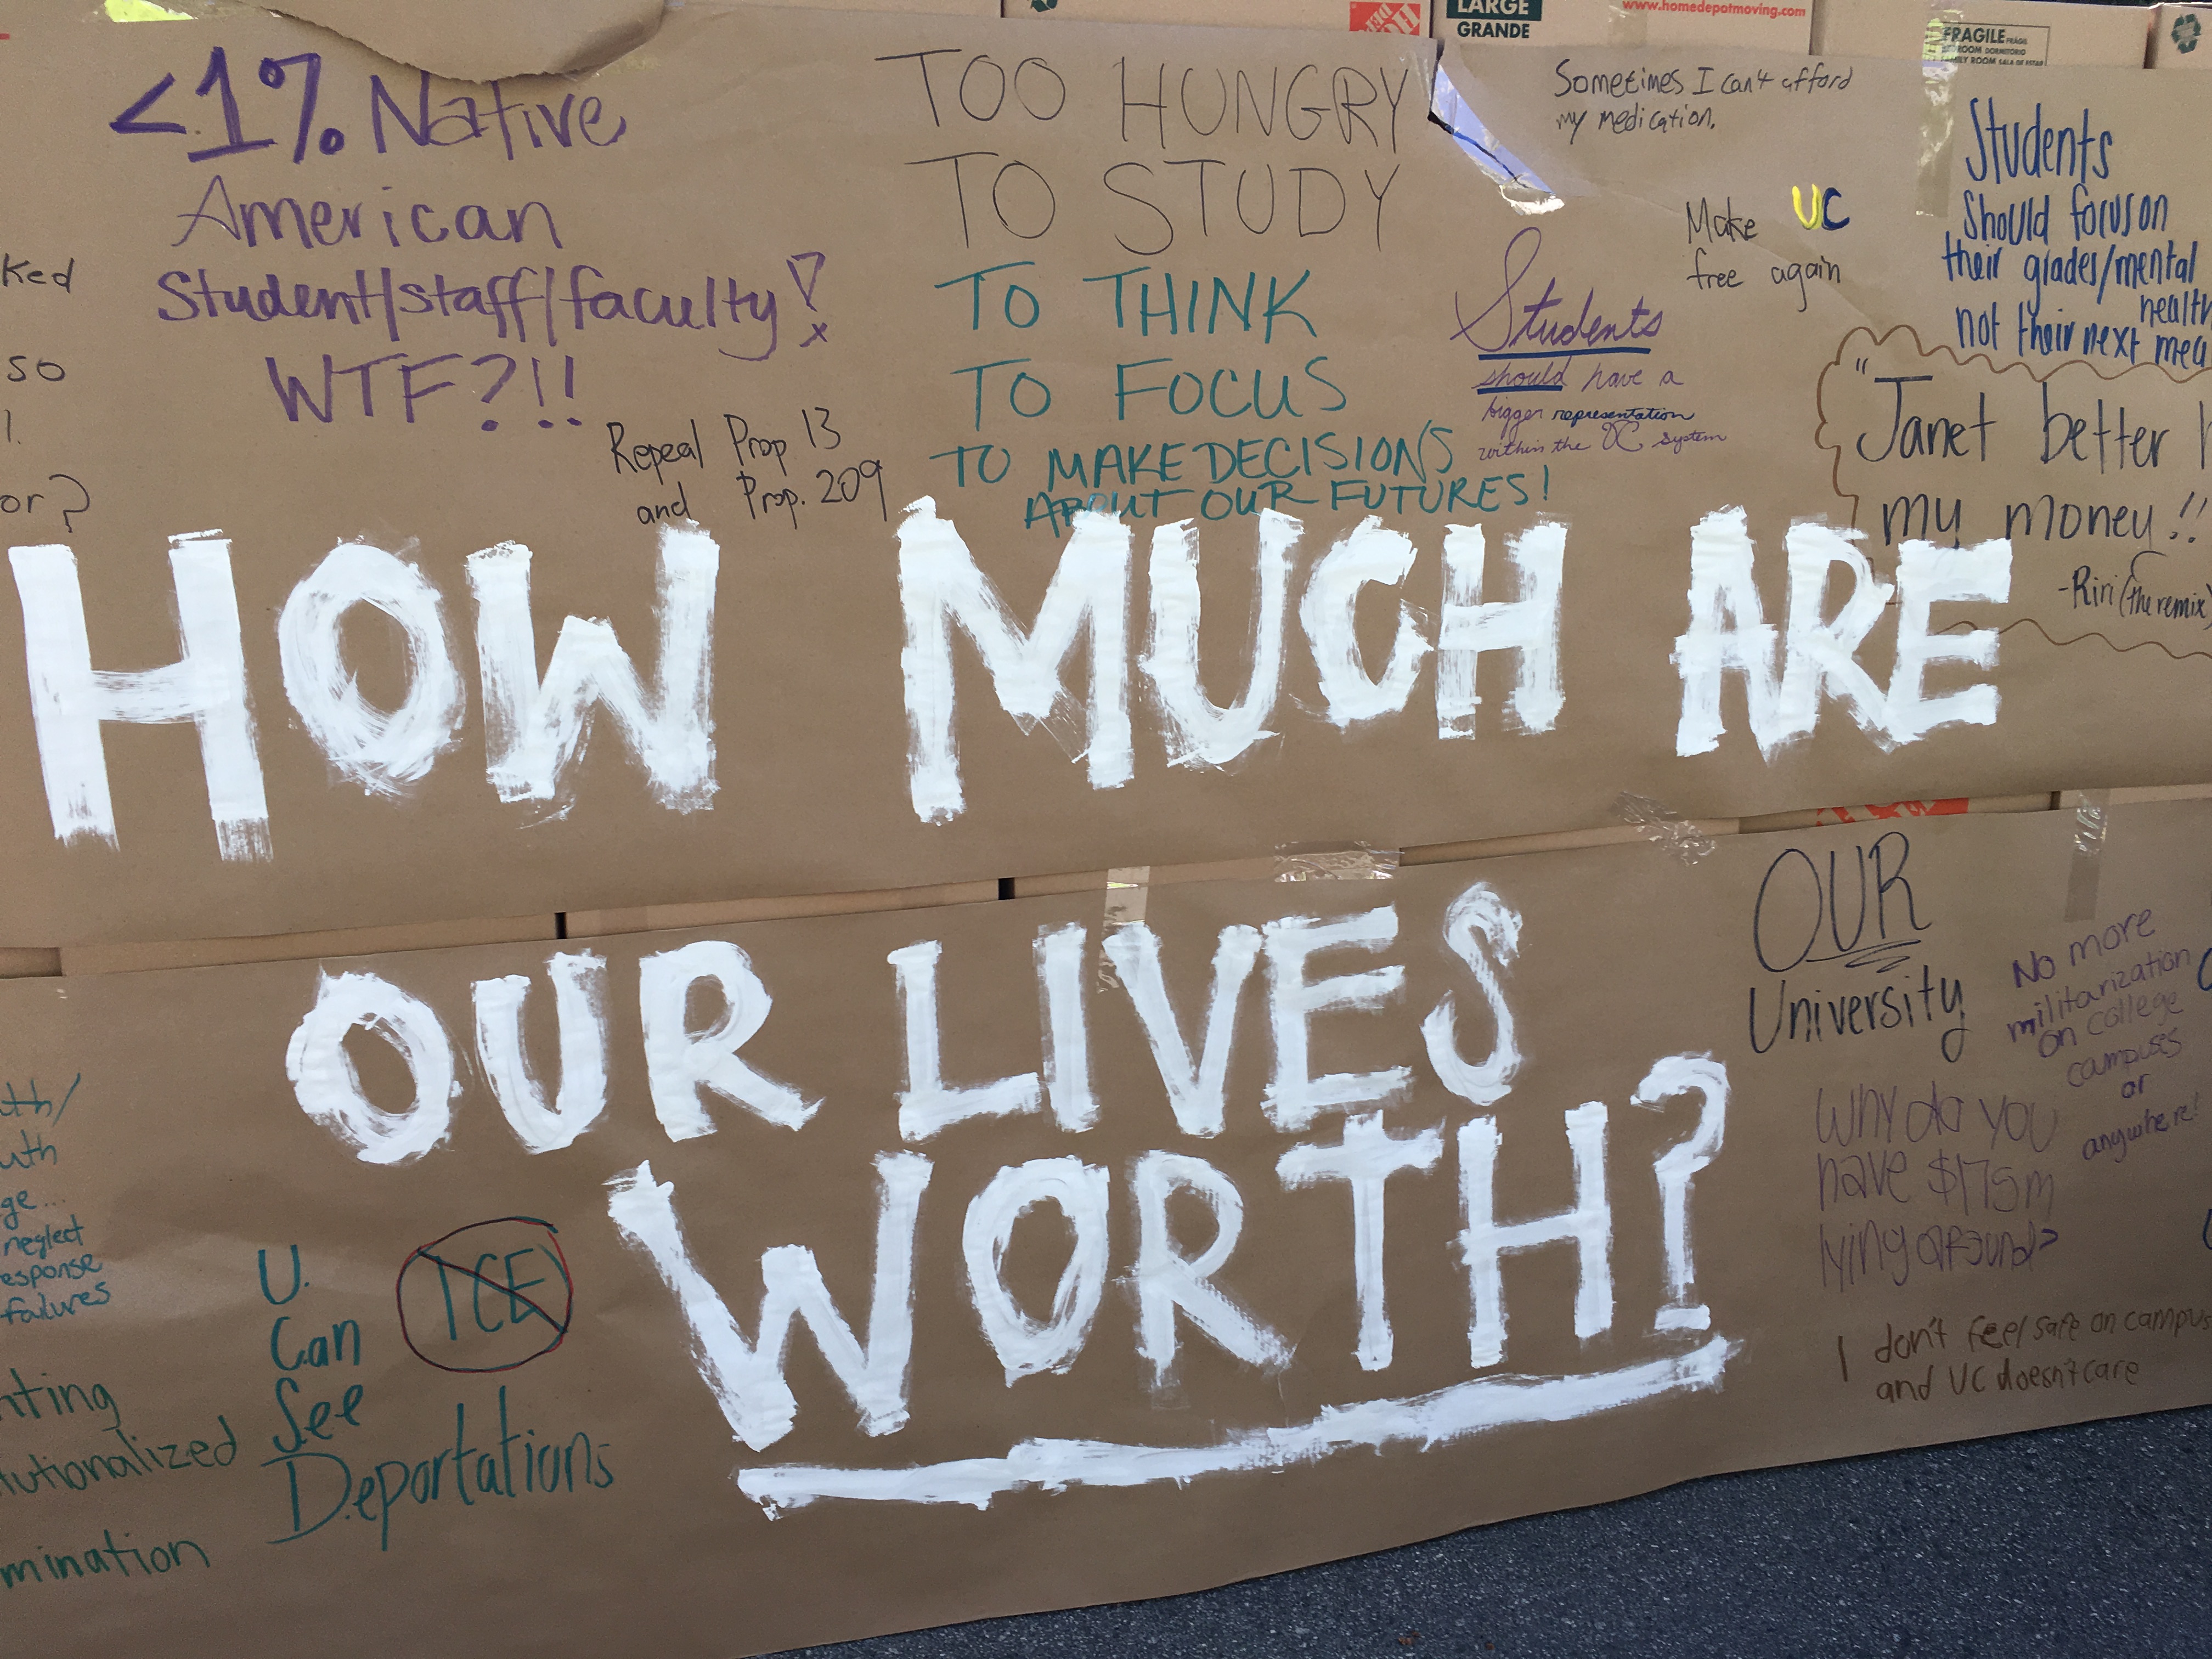 LARGE
GRANDE
www.homedepotmoving.com
FRAGILE FRÁGIL
<1% Native
American
Student/staff/faculty!
WTF?!!
Repeal Prop 13
and Prop. 209
TOO HUNGRY
TO STUDY
TO THINK
TO FOCUS
TO MAKE DECISIONS
ABOUT OUR FUTURES!
Sometimes I can't afford
my medication.
Make UC
free again
Students
should have a
bigger representation
within the UC system
Students
Should focus on
their grades/mental
health
not their next mea
"Janet better
my money!!
-Riri (the remix)
ked
so
or?
HOW MUCH ARE
OUR LIVES
WORTH?
OUR
University
No more
militarization
on college
campuses
or
anywhere!
Why do you
have $175m
lying around?
I don't feel safe on campus
and UC doesn't care
uth
ge...
neglect
esponse
failures
nting
tutionalized
mination
U.
Can
See
Deportations
ICE